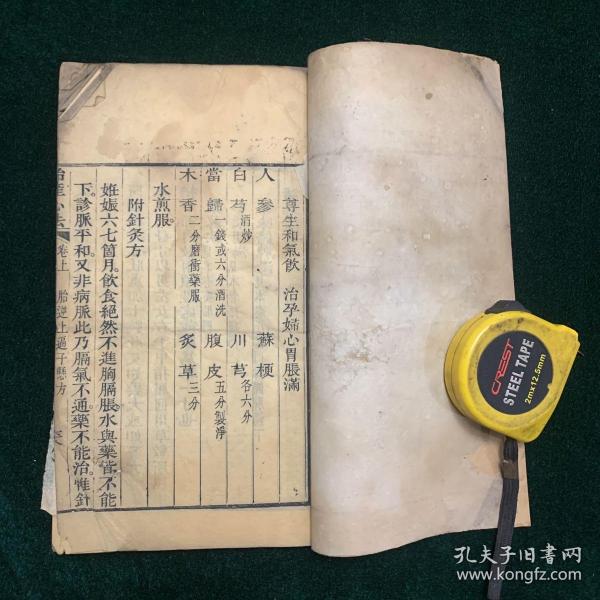 尊生和氣飲 治孕婦心胃脹滿
人參 蘇梗
白芍酒炒 川芎各六分
當歸一錢或六分酒洗 腹皮五分製淨
木香二分磨衝藥服 炙草三分
水煎服。
附針灸方
姙娠六七箇月。飲食絕然不進。胸膈脹。水與藥皆不能
下。診脈平和。又非病脈。此乃膈氣不通。藥不能治。惟針
卷上 胎逆上逼子懸方
CREST
STEEL TAPE
2mx12.5mm
孔夫子旧書网
www.kongfz.com